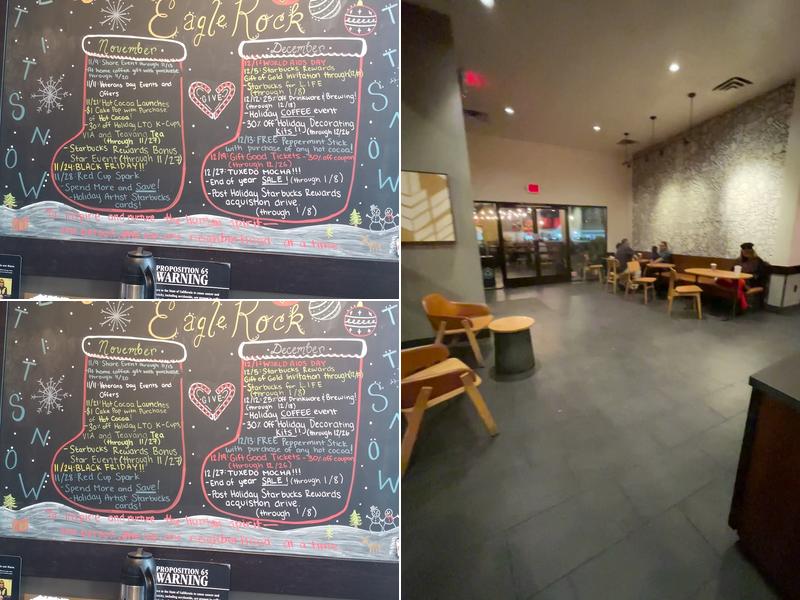 Eagle Rock
November
11/9 Share Event through 11/13
At home coffee gift with purchase
through 11/20
11/11 Veterans Day Events and
Offers
11/21 Hot Cocoa Launches
-$1 Cake Pop with Purchase
of Hot Cocoa!
-30% off Holiday LTO K-Cups,
VIA and Teavana Tea
(through 11/27)
-Starbucks Rewards Bonus
Star Event (through 11/27)
11/24: BLACK FRIDAY!!
11/28: Red Cup Spark
-Spend More and Save!
-Holiday Artist Starbucks
cards!
GIVE
December
12/1: WORLD AIDS DAY
12/5: Starbucks Rewards
Gift of Gold Invitation through
-Starbucks for LIFE
(through 1/8)
Off Drinkware & Brewing!
(through 12/18)
-Holiday COFFEE event
-30% Off Holiday Decorating
Kits!! (through 12/26
12/13: FREE Peppermint Stick
with purchase of any hot cocoa!
12/19: Gift Good Tickets - 30% off coupon
(through 12/26)
12/27: TUXEDO MOCHA!!!
-End of year SALE! (through 1/8)
-Post Holiday Starbucks Rewards
acquistion drive
(through 1/8)
To inspire and nurture the human spirit—
one person, one cup, one neighborhood at a time.
T
I
S
N
O
W
PROPOSITION 65
WARNING
Eagle Rock
November
11/9 Share Event through 11/13
At home coffee gift with purchase
through 11/20
11/11 Veterans Day Events and
Offers
11/21 Hot Cocoa Launches
-$1 Cake Pop with Purchase
of Hot Cocoa!
-30% off Holiday LTO K-Cups,
VIA and Teavana Tea
(through 11/27)
-Starbucks Rewards Bonus
Star Event (through 11/27)
11/24: BLACK FRIDAY!!
11/28: Red Cup Spark
-Spend More and Save!
-Holiday Artist Starbucks
cards!
GIVE
December
12/1: WORLD AIDS DAY
12/5: Starbucks Rewards
Gift of Gold Invitation through
-Starbucks for LIFE
(through 1/8)
Off Drinkware & Brewing!
(through 12/18)
-Holiday COFFEE event
-30% Off Holiday Decorating
Kits!! (through 12/26
12/13: FREE Peppermint Stick
with purchase of any hot cocoa!
12/19: Gift Good Tickets - 30% off coupon
(through 12/26)
12/27: TUXEDO MOCHA!!!
-End of year SALE! (through 1/8)
-Post Holiday Starbucks Rewards
acquistion drive
(through 1/8)
To inspire and nurture the human spirit—
one person, one cup, one neighborhood at a time.
T
I
S
N
O
W
PROPOSITION 65
WARNING